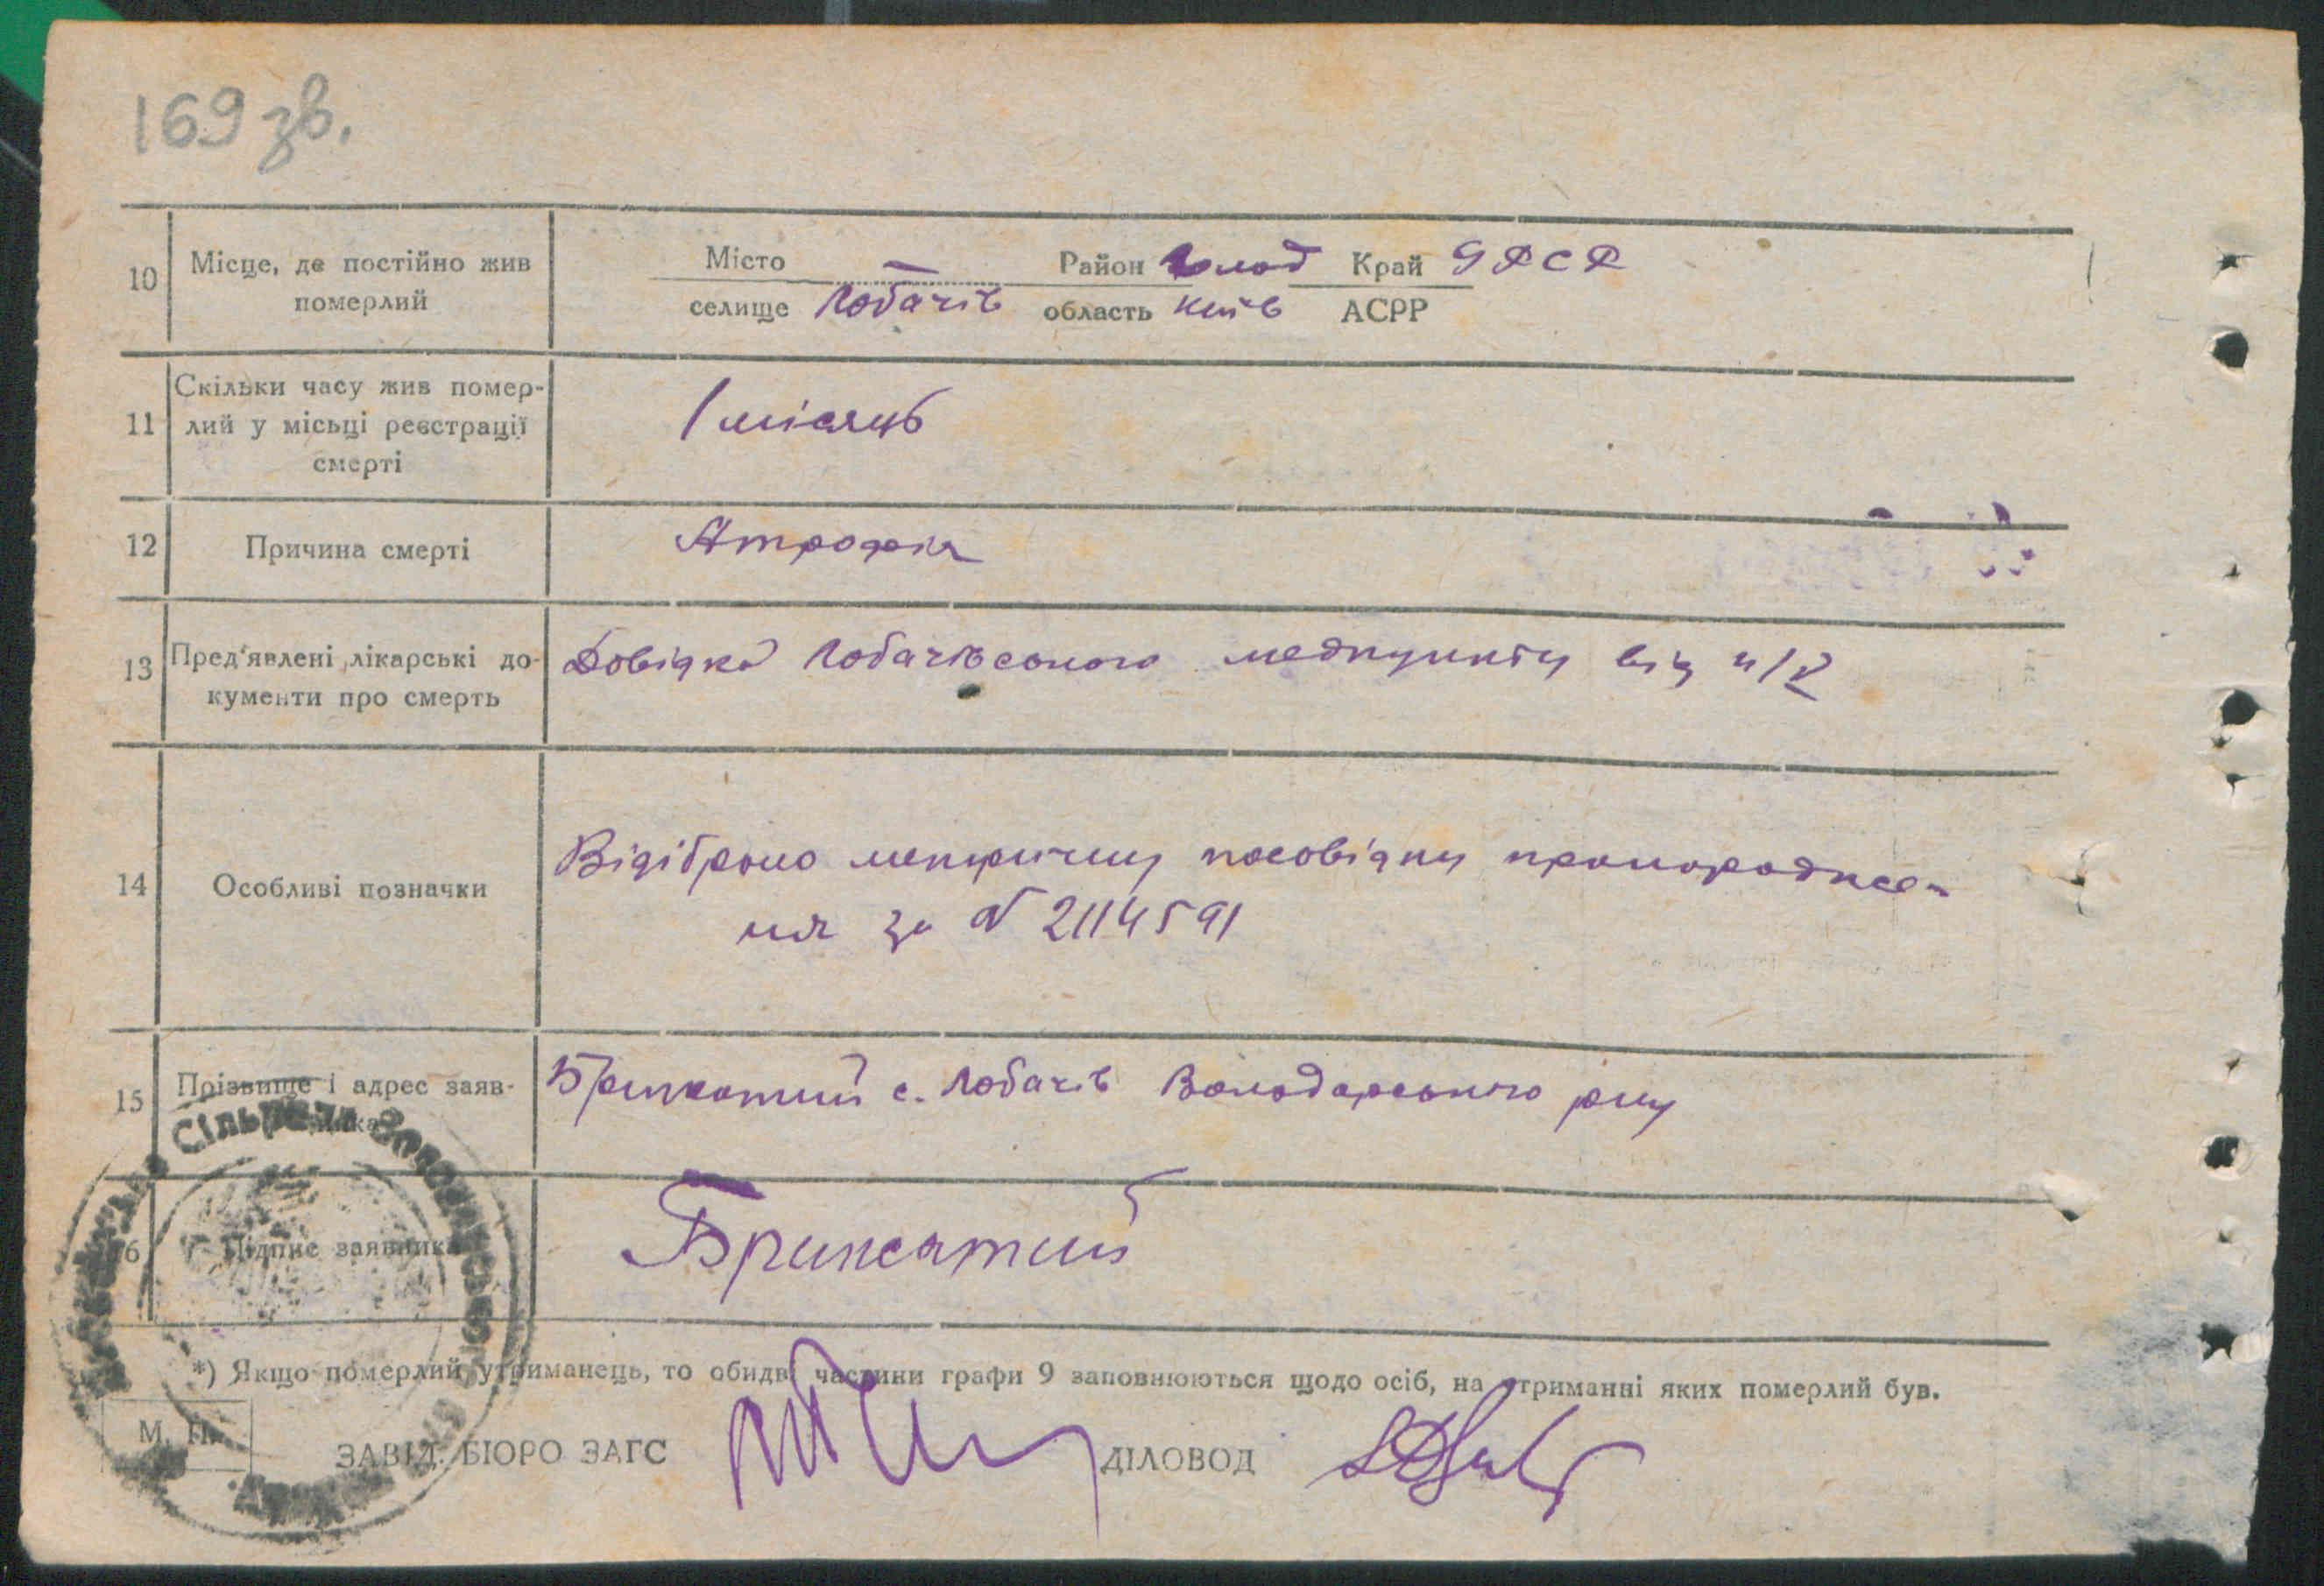 169 зв.
10 Місце, де постійно жив померлий
Місто — Район Волод Край УРСР
селище Лобачів область Київ АСРР
11 Скільки часу жив помер-
лий у місьці реєстрації
смерті
1 місяць
12 Причина смерті Атрофія
13 Пред'явлені лікарські до-
кументи про смерть
Довідка Лобачівського медпункту від 4/V
14 Особливі позначки
Відібрано метричну посвідку про народжен-
ня за № 2114591
15 Прізвище і адрес заяв-
ника
Брижатий с. Лобачів Володарського р-ну
16 Підпис заявника
Брижатий
*) Якщо померлий утриманець, то обидві частини графи 9 заповнюються щодо осіб, на утриманні яких померлий був.
М. П.
ЗАВІД. БЮРО ЗАГС ДІЛОВОД
Сільрада Володарського